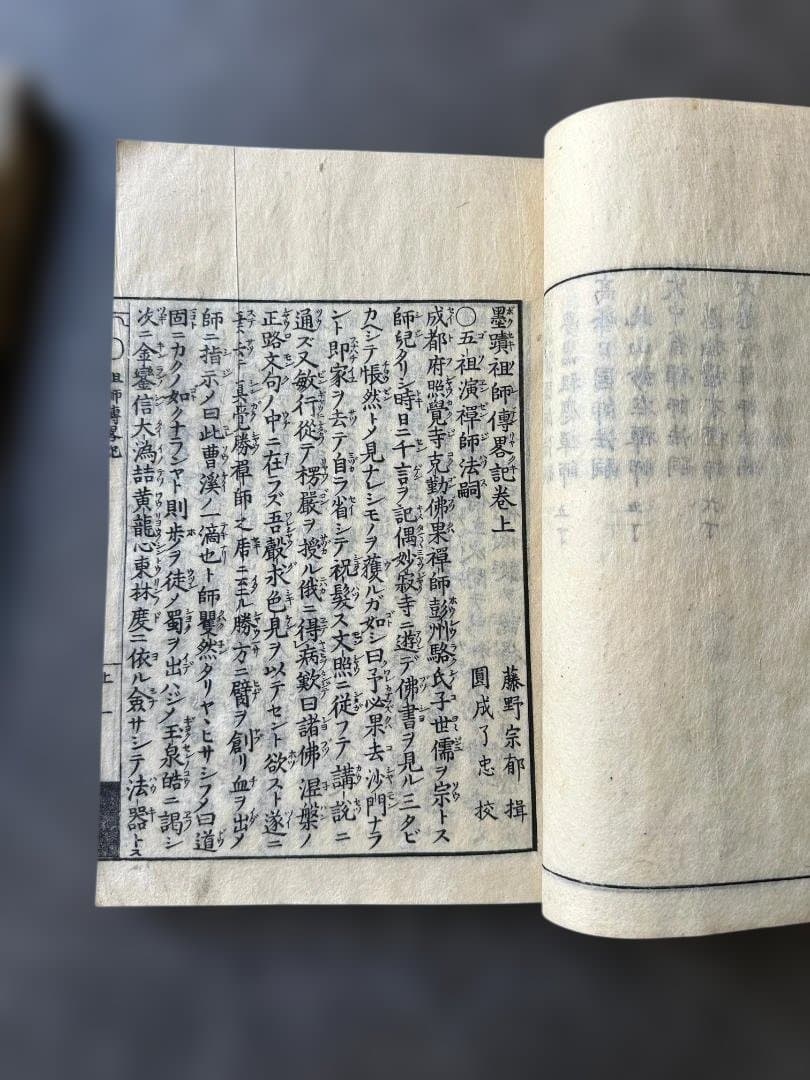 墨蹟祖師傳畧記卷上
藤野宗郁 揖
〇五祖演禪師法嗣
圓成了忠 校
成都府照覺寺克勤佛果禪師彭州駱氏子世儒ヲ宗トス
師兒タリシ時日ニ千言ヲ記偶妙寂寺ニ遊テ佛書ヲ見ル三タビ
カヘシテ悵然トノ見ナレシモノヲ獲ルガ如シ曰予必果去沙門ナラ
ント即家ヲ去テ自ラ省シテ祝髮ス文照ニ從フテ講説ニ
通ズ又敏行從テ楞嚴ヲ授ル俄ニ得病欸曰諸佛涅槃ノ
正路文句ノ中ニ在ラズ吾聲求色見ヲ以テセント欲スト遂ニ
真覺勝禪師之席ニ至ル勝方ニ臂ヲ創リ血ヲ出ノ
師ニ指示ノ曰此曹溪ノ一滴也ト師矍然タリヤヽヒサシフノ曰道
固ニカクノ如クナランヤト則歩ヲ徒ノ蜀ヲ出ハジノ玉泉皓ニ謁シ
次ニ金鑾信大溈喆黄龍心東林度ニ依ル僉サシテ法器トス
祖師傳畧記
上 一